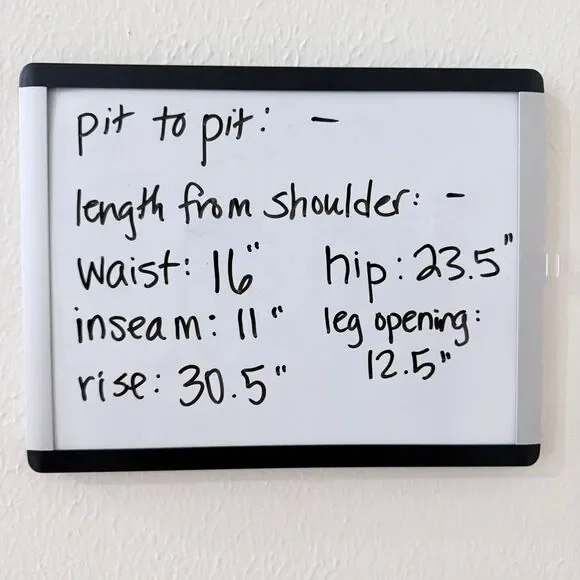 pit to pit: -
length from shoulder: -
waist: 16" hip: 23.5"
inseam: 11" leg opening:
12.5"
rise: 30.5"